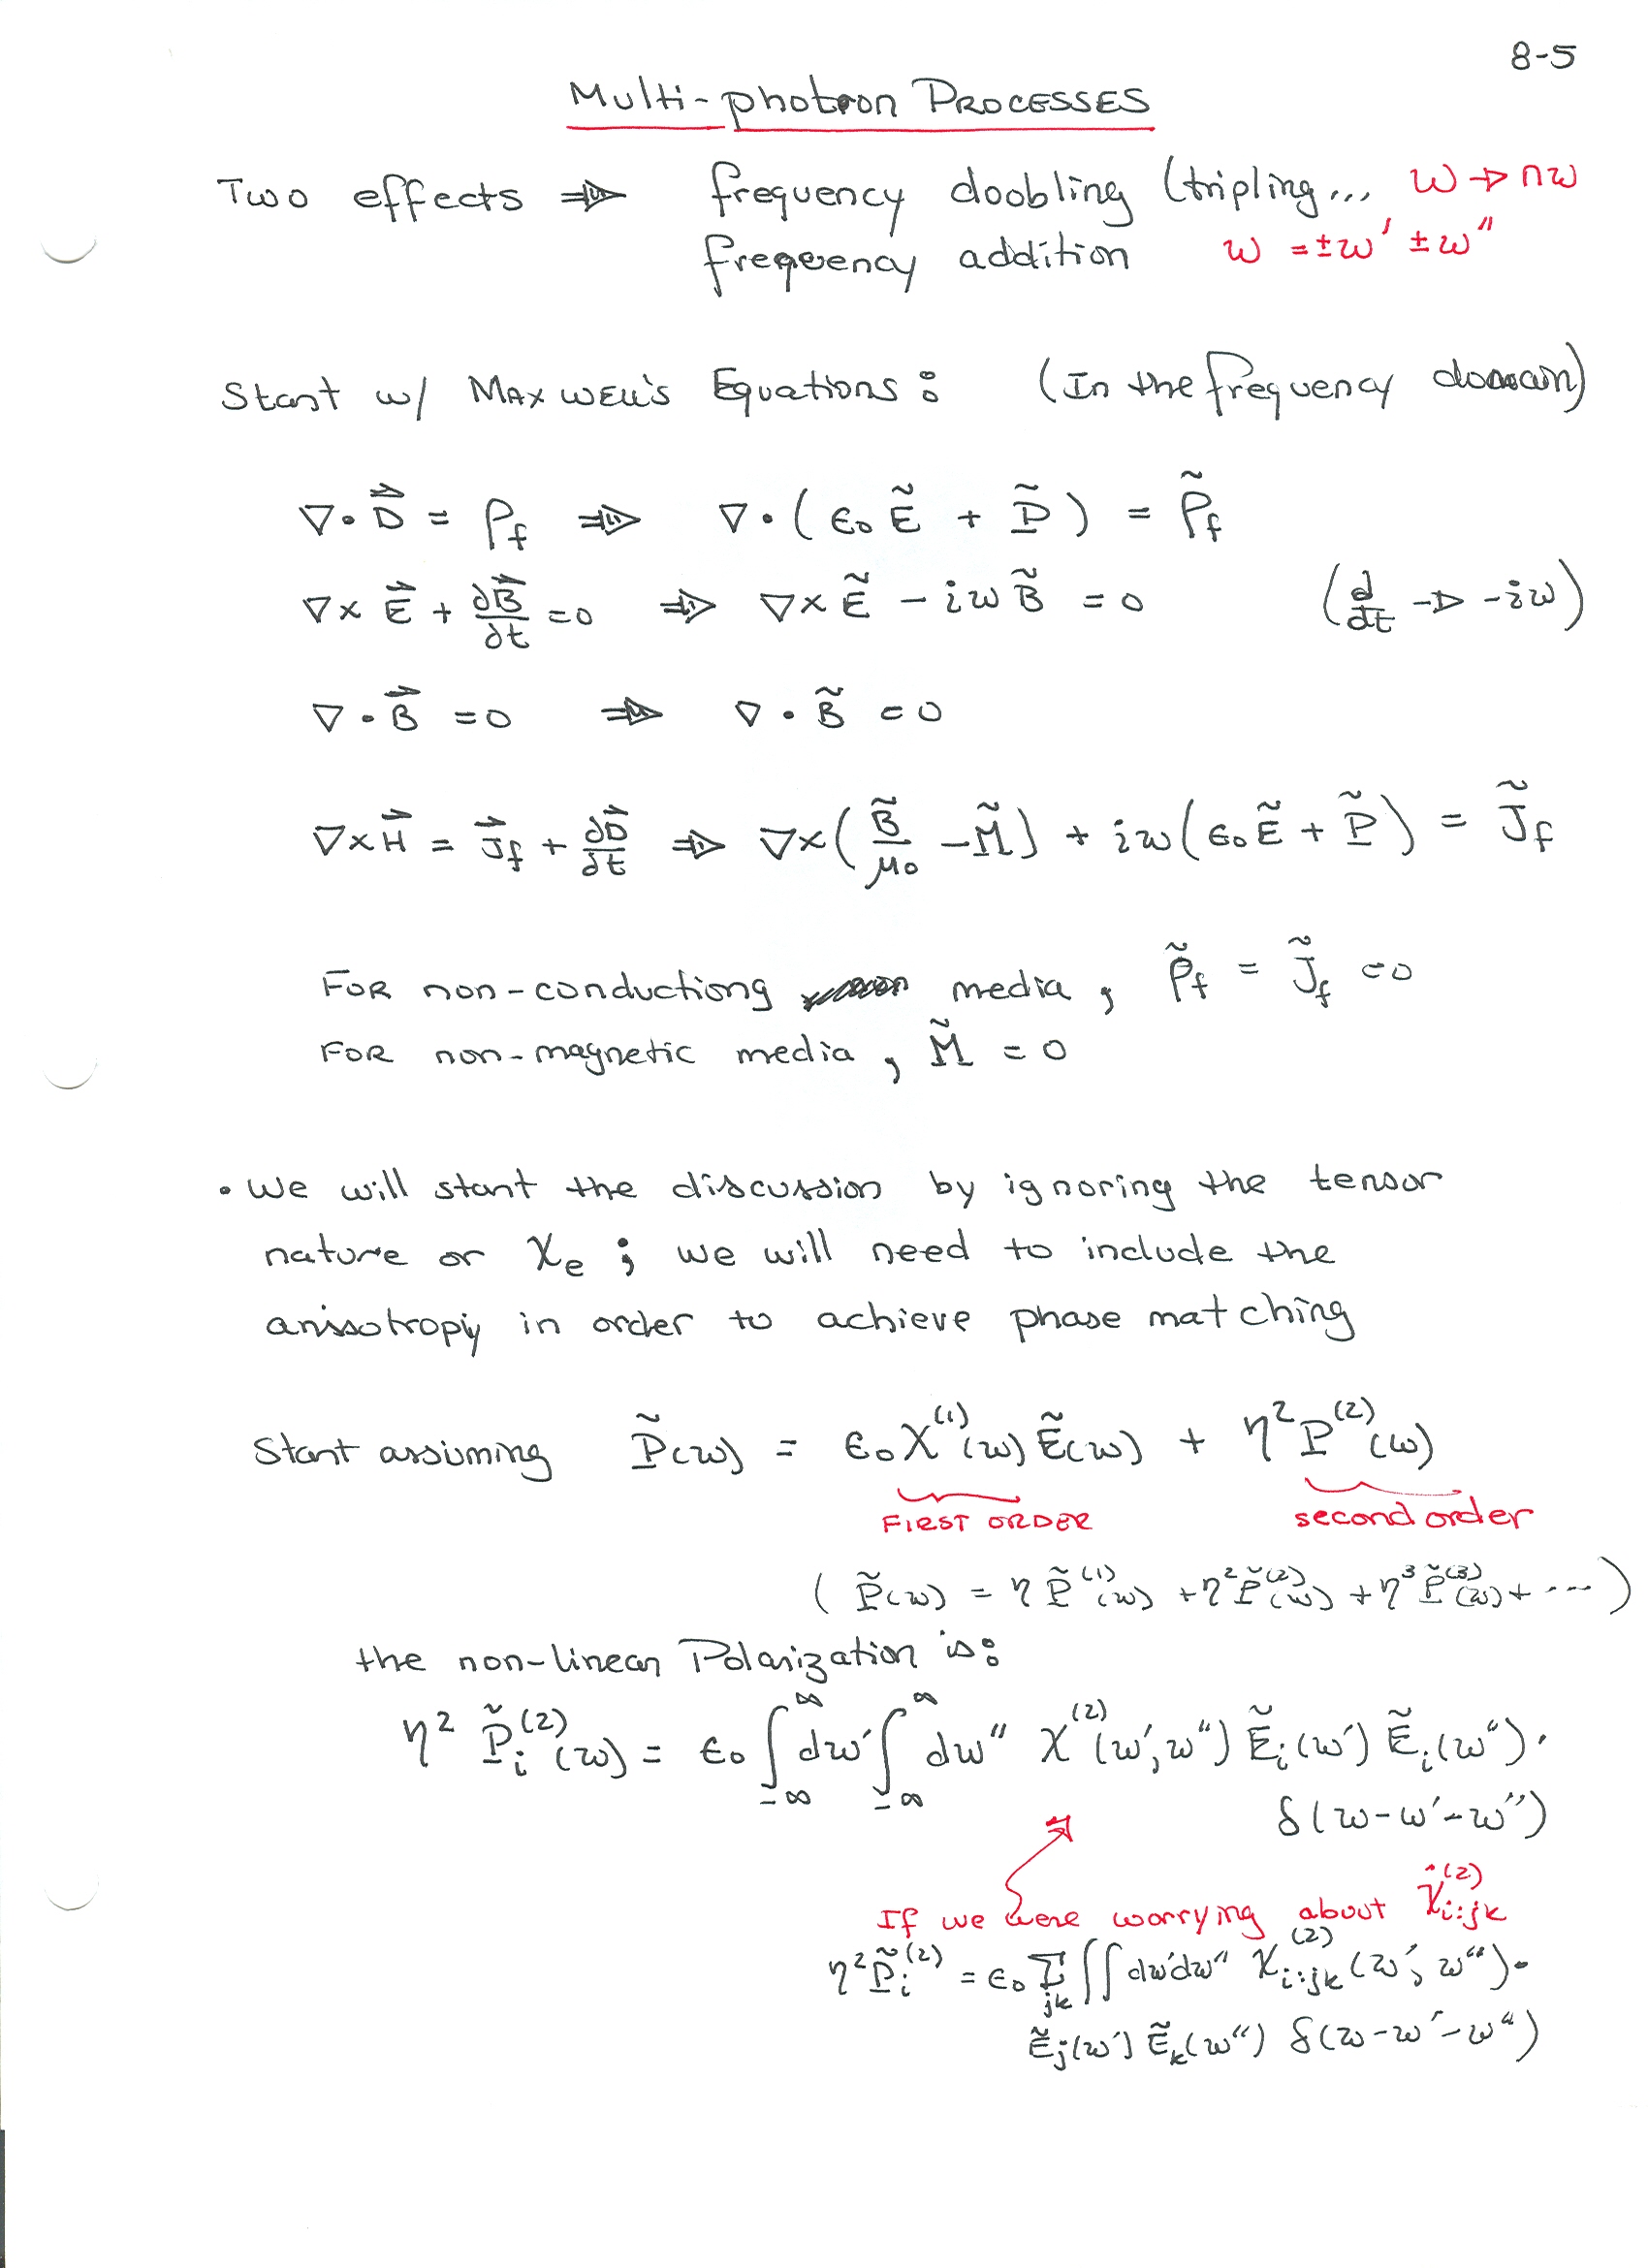 8-5
Multi-photon PROCESSES
Two effects ⇒ frequency doobling (tripling... ω → nω
frequency addition ω = ±ω' ±ω"
Start w/ MAXWELL'S Equations: (In the frequency domain)
∇·D⃗ = ρ_f ⇒ ∇·(ε₀Ẽ + P̃) = ρ̃_f
∇×E⃗ + ∂B⃗/∂t = 0 ⇒ ∇×Ẽ - iωB̃ = 0 (d/dt → -iω)
∇·B⃗ = 0 ⇒ ∇·B̃ = 0
∇×H⃗ = J⃗_f + ∂D⃗/∂t ⇒ ∇×(B̃/μ₀ - M̃) + iω(ε₀Ẽ + P̃) = J̃_f
FOR non-conductiong media, ρ̃_f = J̃_f = 0
FOR non-magnetic media, M̃ = 0
• We will start the discussion by ignoring the tensor
nature or χ_e ; we will need to include the
anisotropiy in order to achieve phase matching
Start assuming P̃(ω) = ε₀χ^(1)(ω)Ẽ(ω) + η²P^(2)(ω)
FIRST ORDER second order
( P̃(ω) = ηP̃^(1)(ω) + η²P̃^(2)(ω) + η³P̃^(3)(ω) + ... )
the non-linear Polarization is:
η² P̃_i^(2)(ω) = ε₀ ∫_-∞^∞ dω' ∫_-∞^∞ dω" χ^(2)(ω', ω") Ẽ_i(ω') Ẽ_i(ω") ·
δ(ω-ω'-ω")
If we were worrying about χ̂_i:jk^(2)
η² P̃_i^(2) = ε₀ Σ_jk ∫∫ dω'dω" χ_i:jk^(2)(ω', ω") ·
Ẽ_j(ω') Ẽ_k(ω") δ(ω-ω'-ω")